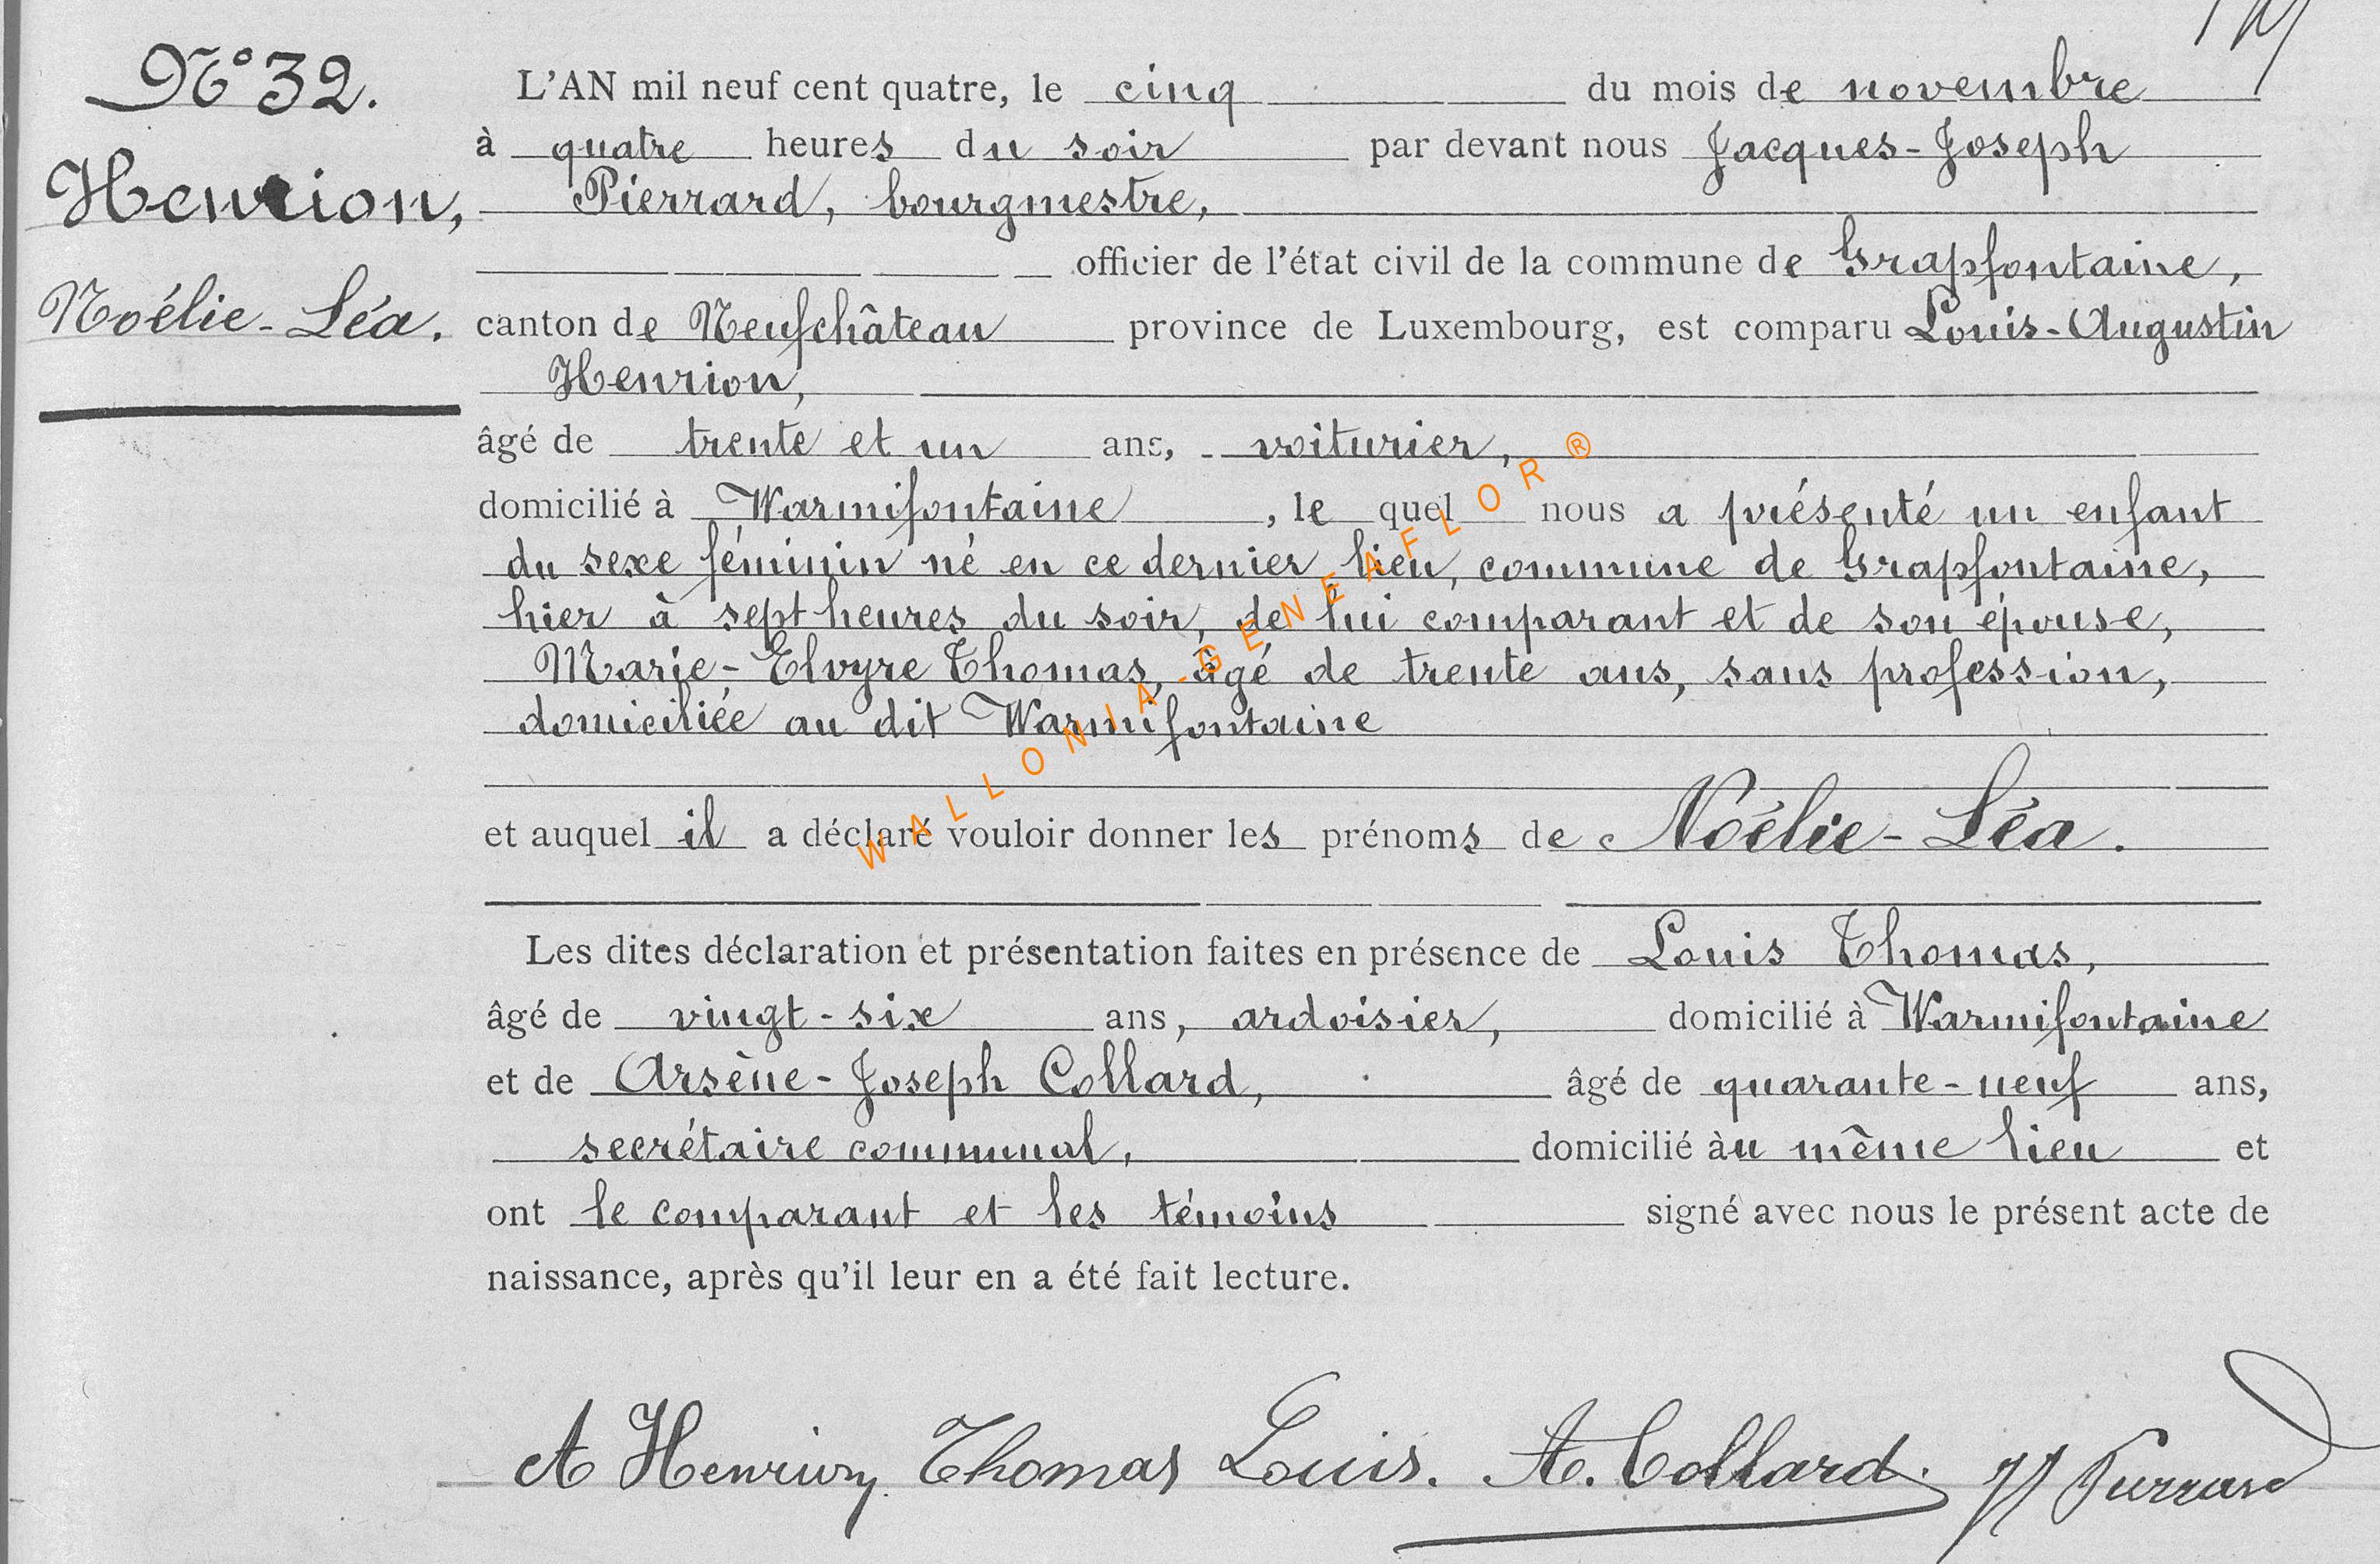 N° 32.
Henrion,
Noélie-Léa.
L'AN mil neuf cent quatre, le cinq du mois de novembre
à quatre heures du soir par devant nous Jacques-Joseph
Pierrard, bourgmestre,
officier de l'état civil de la commune de Grapfontaine,
canton de Neufchâteau province de Luxembourg, est comparu Louis-Augustin
Henrion,
âgé de trente et un ans, voiturier,
domicilié à Warmifontaine, le quel nous a présenté un enfant
du sexe féminin né en ce dernier lieu, commune de Grapfontaine,
hier à sept heures du soir, de lui comparant et de son épouse,
Marie-Elvyre Thomas, âgé de trente ans, sans profession,
domiciliée au dit Warmifontaine
et auquel il a déclaré vouloir donner les prénoms de Noélie-Léa.
Les dites déclaration et présentation faites en présence de Louis Thomas,
âgé de vingt-six ans, ardoisier, domicilié à Warmifontaine
et de Arsène-Joseph Collard, âgé de quarante-neuf ans,
secrétaire communal, domicilié àu même lieu et
ont le comparant et les témoins signé avec nous le présent acte de
naissance, après qu'il leur en a été fait lecture.
A Henrion Thomas Louis. A. Collard. JJ Pierrard
WALLONIA-GENEAFLOR®